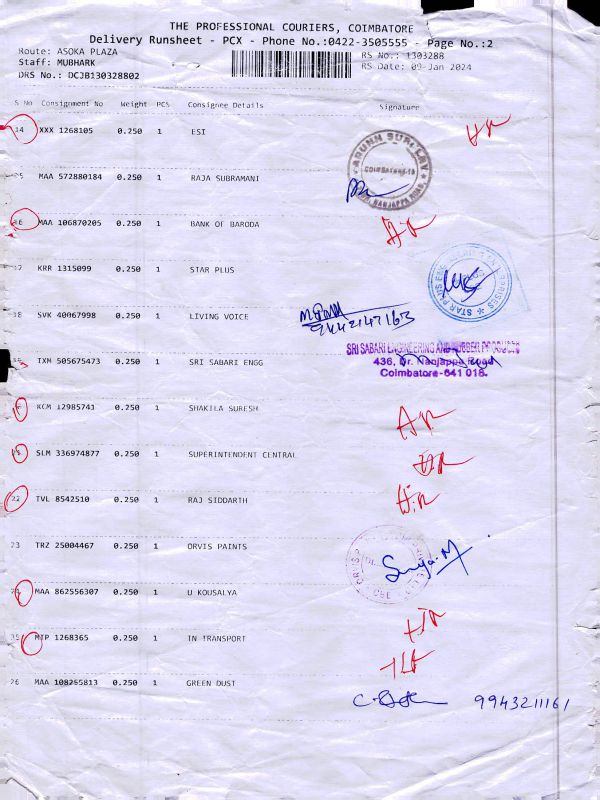 THE PROFESSIONAL COURIERS, COIMBATORE
Delivery Runsheet - PCX - Phone No.:0422-3505555 - Page No.:2
Route: ASOKA PLAZA
RS No.: 1303288
Staff: MUBHARK
RS Date: 09-Jan 2024
DRS No.: DCJB130328802
S No Consignment No Weight PCS Consignee Details Signature
14 XXX 1268105 0.250 1 ESI
MAA 572880184 0.250 1 RAJA SUBRAMANI
COIMBATORE-18
NANJAPPA ROAD
16 MAA 106870205 0.250 1 BANK OF BARODA
17 KRR 1315099 0.250 1 STAR PLUS
STAR PLUS
18 SVK 40067998 0.250 1 LIVING VOICE
9442147163
TXM 505675473 0.250 1 SRI SABARI ENGG
SRI SABARI ENGINEERING AND RUBBER PRODUCTS
436, Dr. Nanjappa Road
Coimbatore-641 018.
KCM 12985741 0.250 1 SHAKILA SURESH
SLM 336974877 0.250 1 SUPERINTENDENT CENTRAL
22 TVL 8542510 0.250 1 RAJ SIDDARTH
23 TRZ 25004467 0.250 1 ORVIS PAINTS
Surya.M
MAA 862556307 0.250 1 U KOUSALYA
MTP 1268365 0.250 1 IN TRANSPORT
26 MAA 108265813 0.250 1 GREEN DUST
9943211161